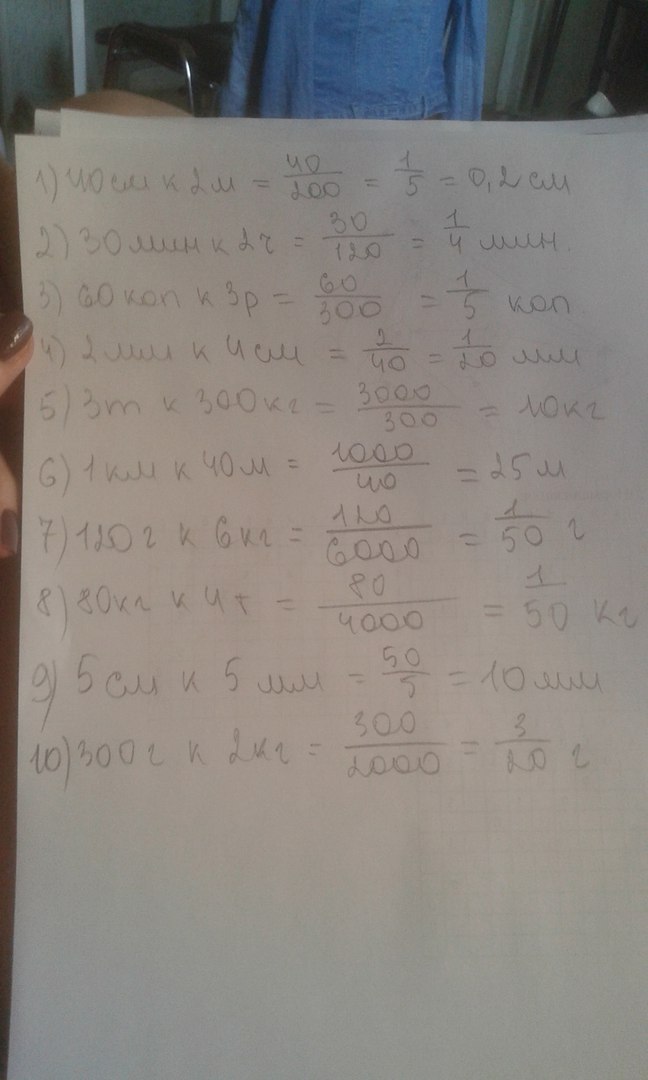 1) 40 см к 2 м = 40/200 = 1/5 = 0,2 см
2) 30 мин к 2 ч = 30/120 = 1/4 мин.
3) 60 коп к 3 р = 60/300 = 1/5 коп
4) 2 мм к 4 см = 2/40 = 1/20 мм
5) 3т к 300 кг = 3000/300 = 10 кг
6) 1 км к 40 м = 1000/40 = 25 м
7) 120 г к 6 кг = 120/6000 = 1/50 г
8) 80 кг к 4 т = 80/4000 = 1/50 кг
9) 5 см к 5 мм = 50/5 = 10 мм
10) 300 г к 2 кг = 300/2000 = 3/20 г